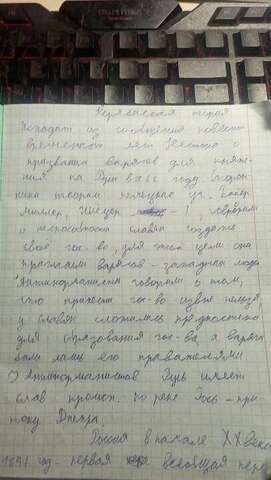 Норманская теория
Исходит из сообщения повести
временных лет Нестора о
призвании варягов для княже-
ния на Русь в 862 году. Сторон
ники теории немецкие уч. Байер
Миллер, Шлецер - , говорили
о неспособности славян создать
своё гос-во, для этой цели они
призвали варягов - западных людей
Антинорманисты говорили о том,
что принести гос-во извне нельзя,
у славян сложились предпосылки
для образования гос-ва, а варяги
были лишь его правителями
Антинорманистов Русь имеет
слав. происх. по реке Рось - при-
току Днепра.
Россия в начале XX века
1897 год - первая всеобщая пере